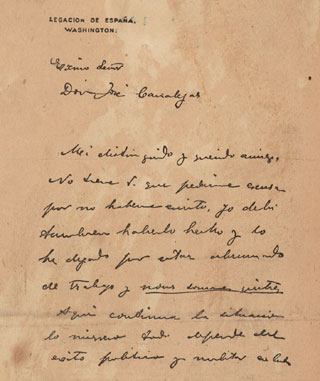 LEGACION DE ESPAÑA.
WASHINGTON.
Excmo Señor
Don José Canalejas
Mi distinguido y querido amigo:
No tiene V. que pedirme excusa
por no haberme escrito, yo debí
tambien haberlo hecho y lo
he dejado por estar abrumado
de trabajo y
Aqui continua la situacion
lo mismo. Todo depende del
exito politico y militar en Cuba